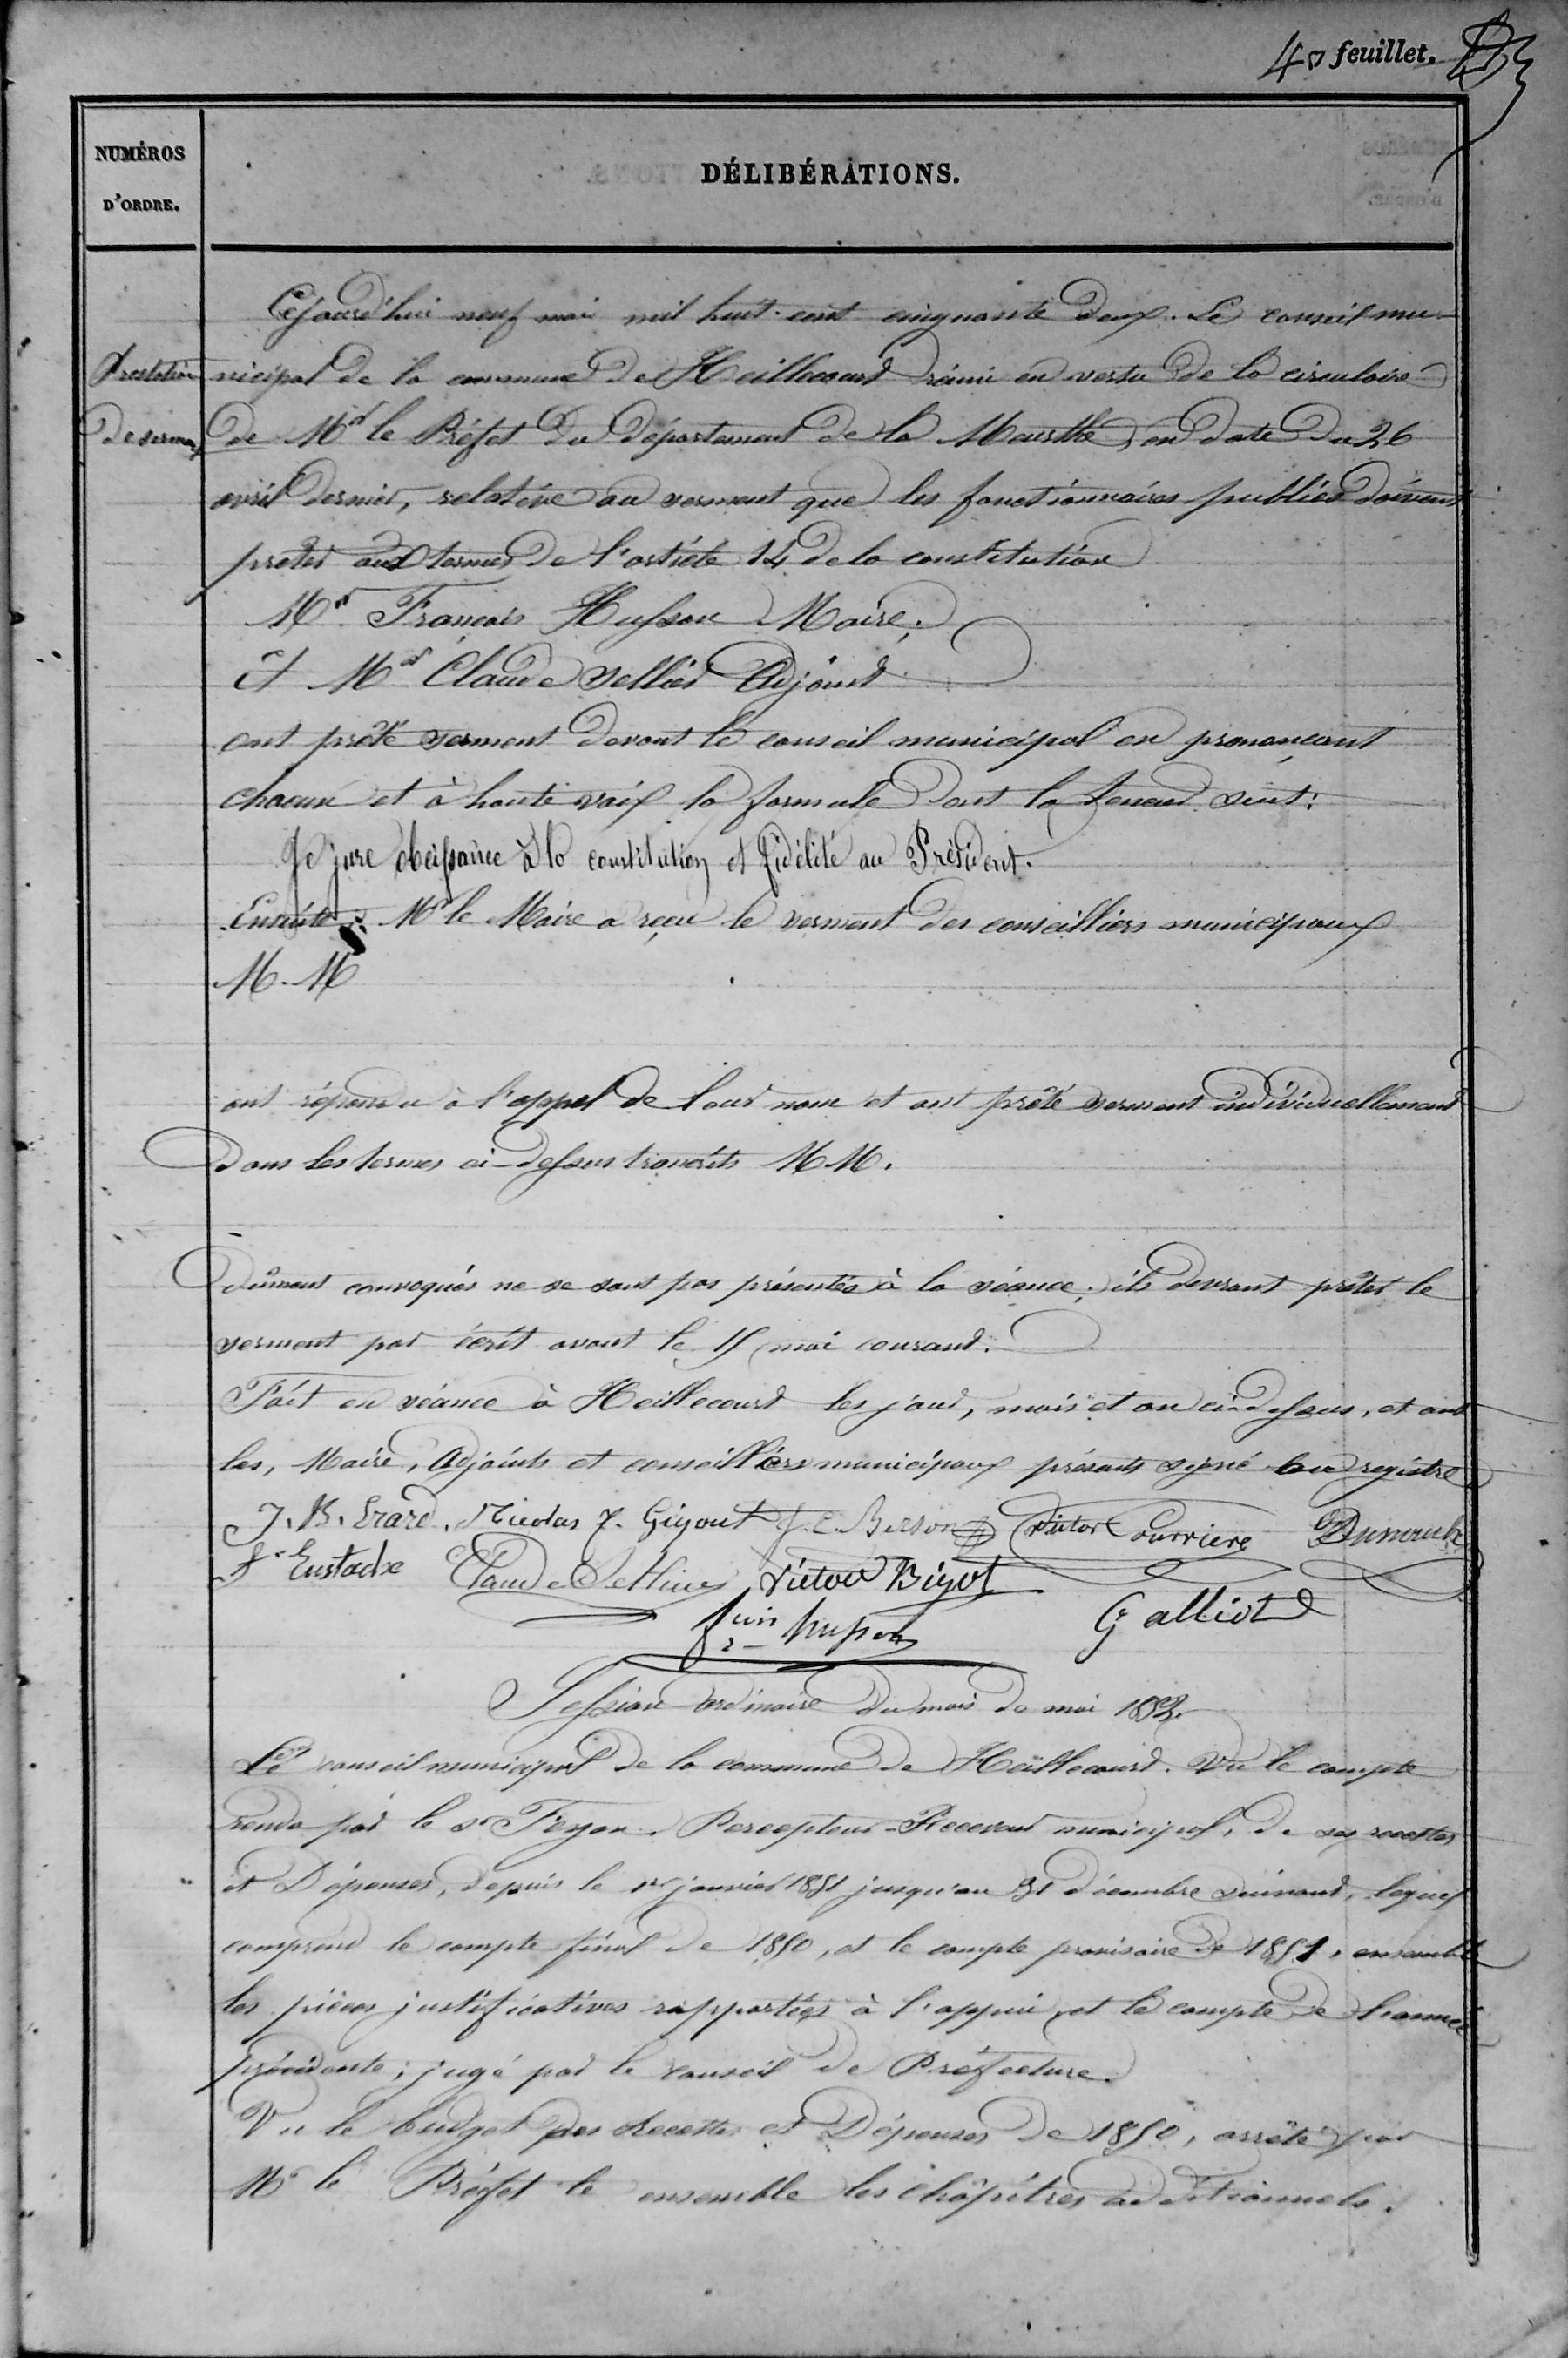 40 feuillet.
NUMÉROS
D'ORDRE.
DÉLIBÉRATIONS.
Cejourd'hui neuf mai mil huit-cent cinquante deux. Le conseil mu-
Prestation
nicipal de la commune de Heillecourt réuni en vertu de la circulaire
de serment
de Mr le Préfet du département de la Meurthe, en date du 26
avril dernier, relative au serment que les fonctionnaires publics doivent
prêter aux termes de l'article 14 de la constitution
Mr. François Husson Maire;
et Mr Claude Sellier Adjoint
ont prêté serment devant le conseil municipal en prononçant
chacun et à haute voix la formule dont la teneur suit:
Je jure obéissance à la constitution et fidélité au Président.
Ensuite Mr le Maire a reçu le serment des conseilliers municipaux
M. M
ont répondu à l'appel de leur nom et ont prêté serment individuellement
dans les termes ci-dessus transcrits M M.
dûment convoqués ne se sont pas présentés à la séance; ils devront prêter le
serment par écrit avant le 15 mai courant.
Fait en séance à Heillecourt les jour, mois et an ci-dessus, et ont
les, Maire, Adjoints et conseilliers municipaux présents signé au registre
J. B. Erard. Nicolas J. Gigout J. C. Berson Victor Courriere
Fs Eustache Claude Sellier Victor Bigot
fcois husson Galliot
Session ordinaire du mois de mai 1852.
Le conseil municipal de la commune de Heillecourt. Vu le compte
rendu par le sr Feyen. Percepteur-Receveur municipal, de ses recettes
et Dépenses, depuis le 1er janvier 1851 jusqu'au 31 décembre suivant, lequel
comprend le compte final de 1850, et le compte provisoire de 1851, ensemble
les pièces justificatives rapportées à l'appui, et le compte de l'année
précédente; jugé par le conseil de Préfecture.
Vu le budget des Recettes et Dépenses de 1850, arrêté par
Mr le Préfet le ensemble les chapitres additionnels.